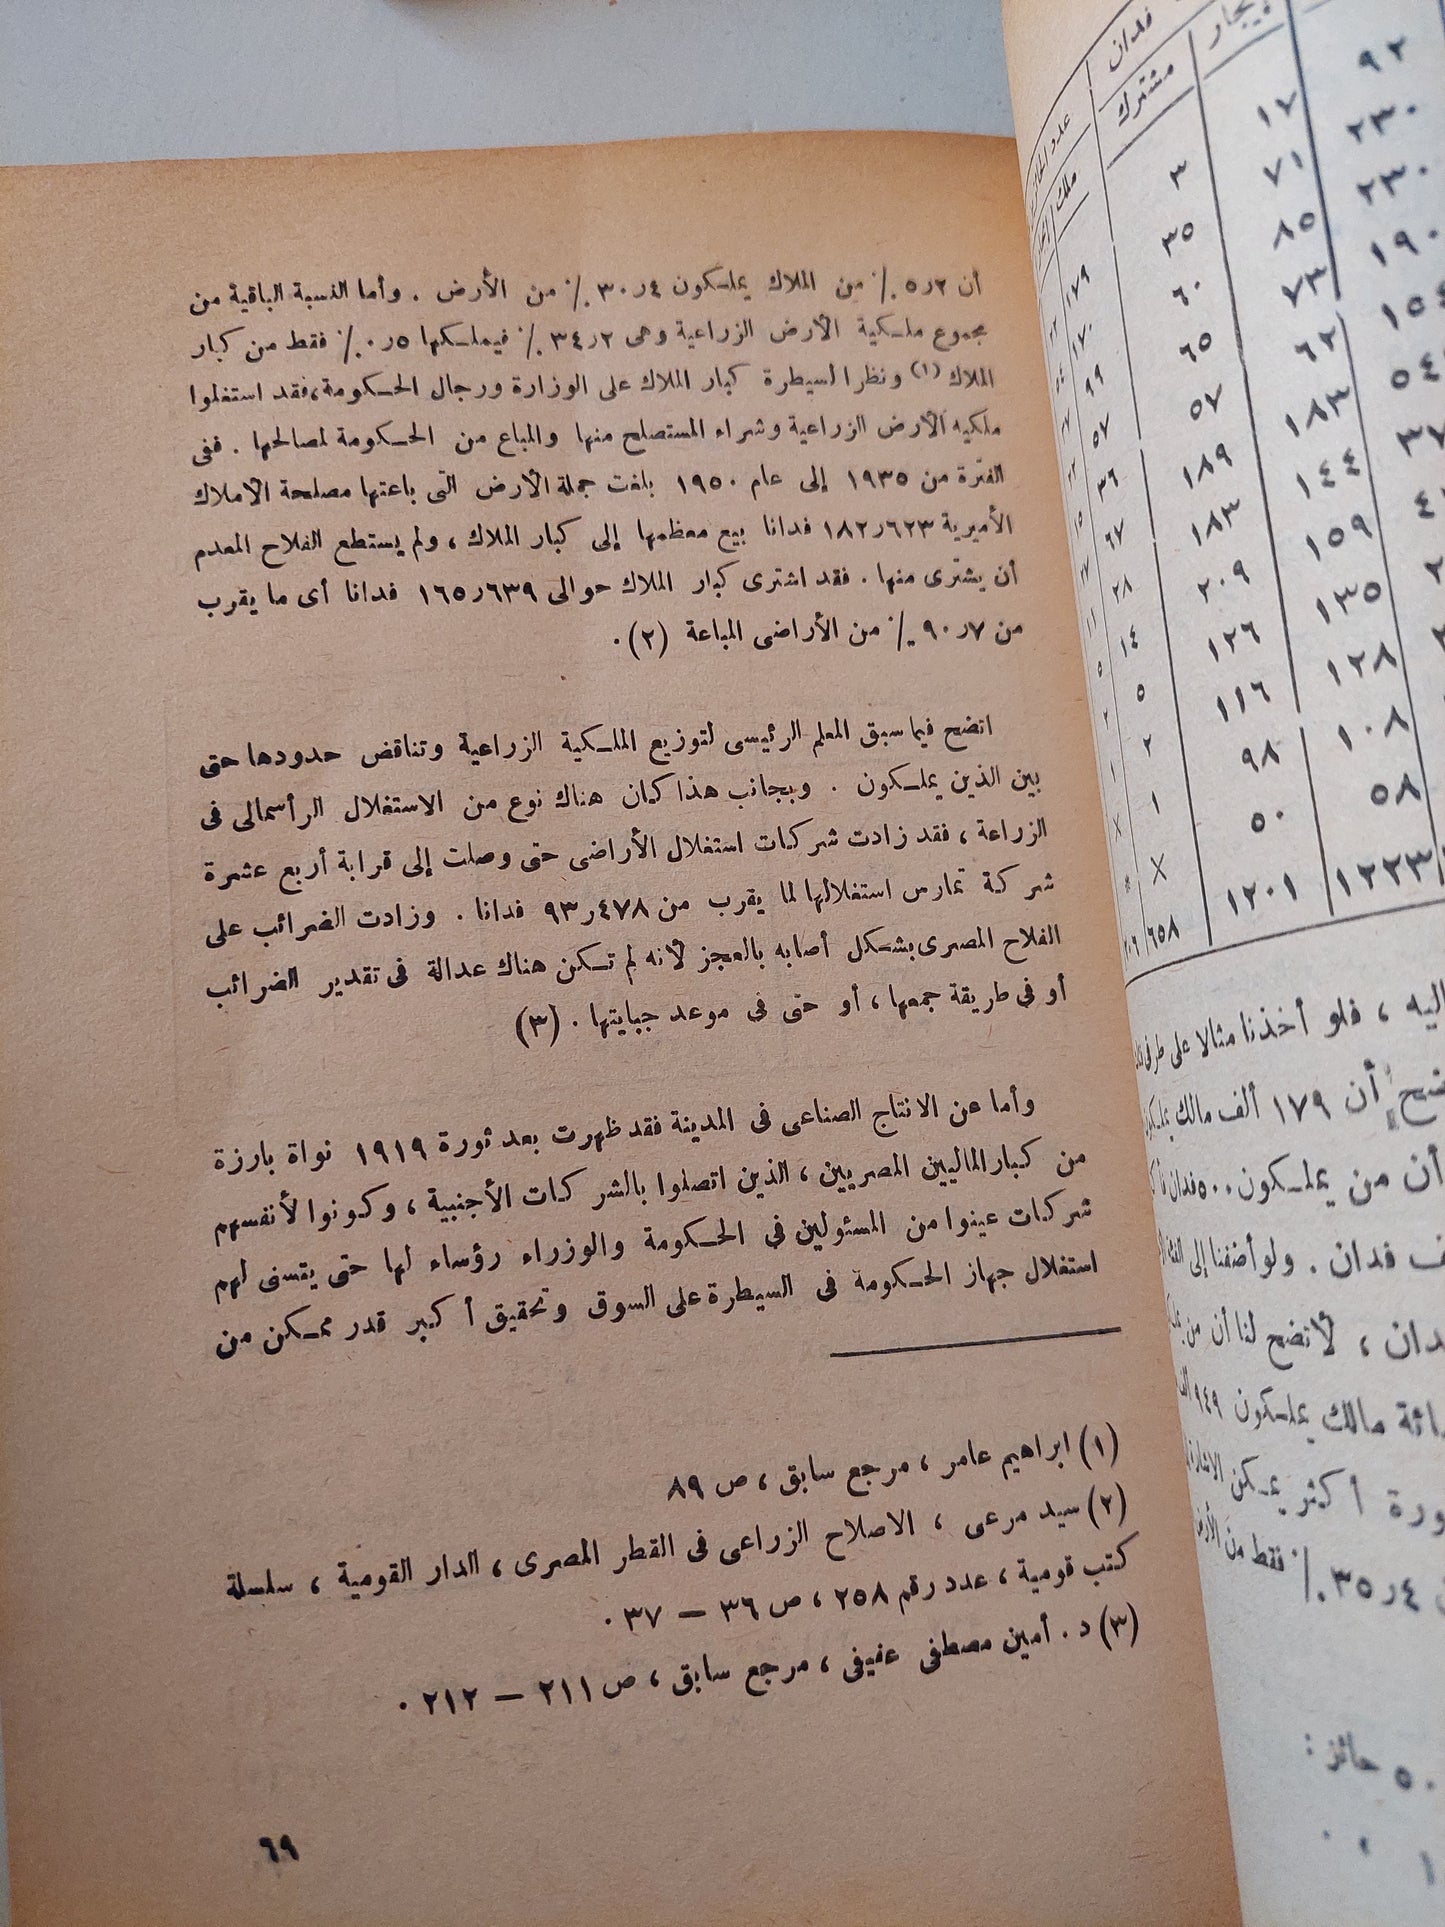 أن ٥٫٢ ٪ من الملاك يملكون ٣٠٫٤ ٪ من الأرض . وأما النسبة الباقية من
مجموع ملكية الأرض الزراعية وهى ٣٤٫٢ ٪ فيملكها ٠٫٥ ٪ فقط من كبار
الملاك (١) ونظرا لسيطرة كبار الملاك على الوزارة ورجال الحكومة، فقد استغلوا
ملكيه الأرض الزراعية وشراء المستصلح منها والمباع من الحكومة لمصالحها . ففى
الفترة من ١٩٣٥ إلى عام ١٩٥٠ بلغت جملة الأرض التى باعتها مصلحة الاملاك
الأميرية ١٨٢٫٦٢٣ فدانا بيع معظمها إلى كبار الملاك ، ولم يستطع الفلاح المعدم
أن يشترى منها . فقد اشترى كبار الملاك حوالى ١٦٥٫٦٣٩ فدانا أى ما يقرب
من ٩٠٫٧ ٪ من الأراضى المباعة (٢) .
اتضح فيما سبق المعلم الرئيسى لتوزيع الملكية الزراعية وتناقض حدودها حتى
بين الذين يملكون . وبجانب هذا كان هناك نوع من الاستغلال الرأسمالى فى
الزراعة ، فقد زادت شركات استغلال الأراضى حتى وصلت إلى قرابة أربع عشرة
شركة تمارس استغلالها لما يقرب من ٩٣٫٤٧٨ فدانا . وزادت الضرائب على
الفلاح المصرى بشكل أصابه بالعجز لأنه لم تكن هناك عدالة فى تقدير الضرائب
أو فى طريقة جمعها ، أو حتى فى موعد جبايتها . (٣)
وأما عن الانتاج الصناعى فى المدينة فقد ظهرت بعد ثورة ١٩١٩ نواة بارزة
من كبار الماليين المصريين ، الذين اتصلوا بالشركات الأجنبية ، وكونوا لأنفسهم
شركات عينوا من المسئولين فى الحكومة والوزراء رؤساء لها حتى يتسنى لهم
استغلال جهاز الحكومة فى السيطرة على السوق وتحقيق أكبر قدر ممكن من
(١) ابراهيم عامر ، مرجع سابق ، ص ٨٩
(٢) سيد مرعى ، الاصلاح الزراعى فى القطر المصرى ، الدار القومية ، سلسلة
كتب قومية ، عدد رقم ٢٥٨ ، ص ٣٦ – ٣٧ .
(٣) د . أمين مصطفى عفيفى ، مرجع سابق ، ص ٢١١ – ٢١٢ .
٦٩
فدان
مشترك
ملك
٩٢
١٧ ٢٣٠
٣ ٧١ ٢٣٠
٣٥ ٨٥ ١٩٠
١٧٩ ٦٠ ٧٣
١٧٠ ٦٥ ٦٢
٩٩ ٥٧ ١٨٣
٥٧ ١٨٩ ١٤٤
٣٦ ١٨٣ ١٥٩
٦٧ ٢٠٩ ١٣٥
٢٨ ١٢٦ ١٢٨
١٤ ١١٦ ١٠٨
٥ ٩٨ ٥٨
٢ ٥٠
١
X
٦٥٨ ١٢٠١ ١٢٢٣
اليه ، فلو أخذنا مثالا على
أن ١٧٩ ألف مالك
أن من يملكون ٥٠٠ فدان
فدان . ولو أضفنا إلى
، لاتضح لنا أن من
مالك يملكون ٩٤٩
أكثر يمكن
٣٥٫٤ ٪ فقط من
حائز :